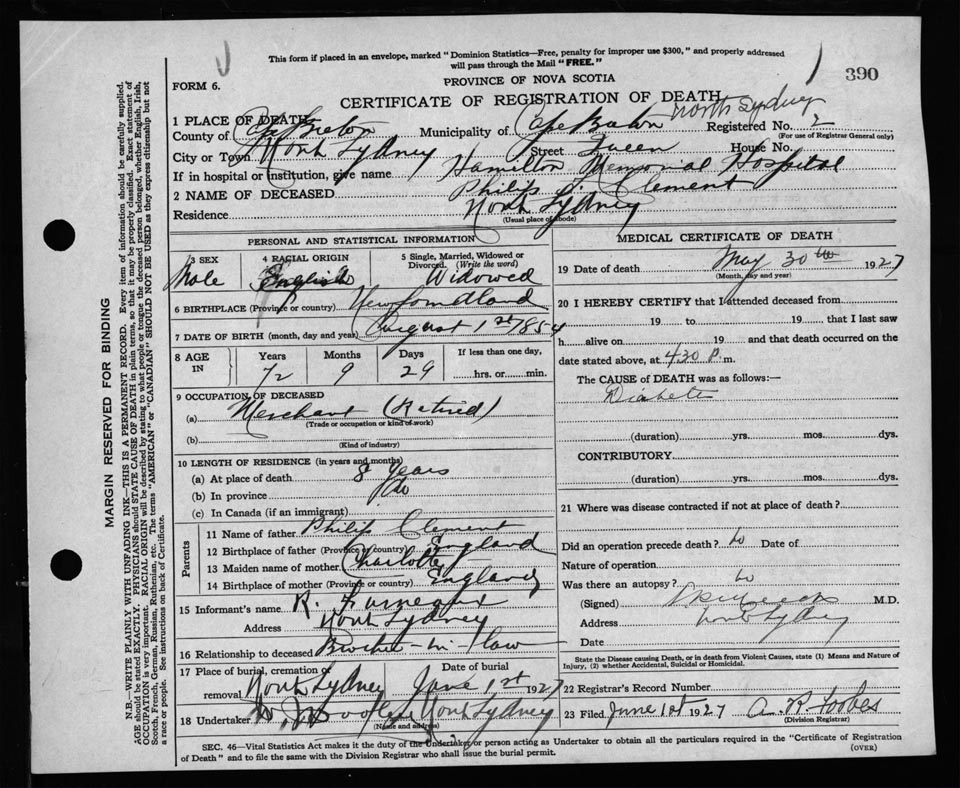 This form if placed in an envelope, marked "Dominion Statistics—Free, penalty for improper use $300," and properly addressed
will pass through the Mail "FREE."
390
FORM 6.
PROVINCE OF NOVA SCOTIA
CERTIFICATE OF REGISTRATION OF DEATH
North Sydney
1 PLACE OF DEATH
County of Cape Breton Municipality of Cape Breton Registered No. 2
(For use of Registrar General only)
City or Town North Sydney Street Queen House No.
If in hospital or institution, give name Hamilton Memorial Hospital
2 NAME OF DECEASED Philip Clement
Residence North Sydney
(Usual place of abode)
PERSONAL AND STATISTICAL INFORMATION
3 SEX 4 RACIAL ORIGIN 5 Single, Married, Widowed or Divorced. (Write the word)
Male English Widowed
6 BIRTHPLACE (Province or country) Newfoundland
7 DATE OF BIRTH (month, day and year) August 1st 1854
8 AGE IN Years Months Days If less than one day,
72 9 29 hrs. or min.
9 OCCUPATION OF DECEASED
(a) Merchant (Retired)
(Trade or occupation or kind of work)
(b)
(Kind of industry)
10 LENGTH OF RESIDENCE (in years and months)
(a) At place of death 8 Years
(b) In province do
(c) In Canada (if an immigrant)
Parents
11 Name of father Philip Clement
12 Birthplace of father (Province or country) England
13 Maiden name of mother Charlotte
14 Birthplace of mother (Province or country) England
15 Informant's name R.
Address North Sydney
16 Relationship to deceased Brother-in-law
17 Place of burial, cremation or removal North Sydney Date of burial June 1st 1927
18 Undertaker North Sydney
(Name and address)
MEDICAL CERTIFICATE OF DEATH
19 Date of death May 30th 1927
(Month, day and year)
20 I HEREBY CERTIFY that I attended deceased from
19 to 19 that I last saw
h alive on 19 and that death occurred on the
date stated above, at 4.30 P. m.
The CAUSE of DEATH was as follows:—
Diabetes
(duration) yrs. mos. dys.
CONTRIBUTORY
(duration) yrs. mos. dys.
21 Where was disease contracted if not at place of death?
Did an operation precede death? no Date of
Nature of operation
Was there an autopsy? no
(Signed) M.D.
Address North Sydney
Date
State the Disease causing Death, or in death from Violent Causes, state (1) Means and Nature of
Injury, (2) whether Accidental, Suicidal or Homicidal.
22 Registrar's Record Number
23 Filed June 1st 1927 A. R. Forbes
(Division Registrar)
SEC. 46—Vital Statistics Act makes it the duty of the Undertaker or person acting as Undertaker to obtain all the particulars required in the "Certificate of Registration
of Death" and to file the same with the Division Registrar who shall issue the burial permit.
(OVER)
MARGIN RESERVED FOR BINDING
N.B.—WRITE PLAINLY WITH UNFADING INK—THIS IS A PERMANENT RECORD. Every item of information should be carefully supplied.
AGE should be stated EXACTLY. PHYSICIANS should STATE CAUSE OF DEATH in plain terms, so that it may be properly classified. Exact statement of
OCCUPATION is very important. RACIAL ORIGIN will be described by stating to what people or tongue the deceased person belonged, whether English, Irish,
Scotch, French, German, Russian, Ruthenian, etc. The terms "AMERICAN" or "CANADIAN" SHOULD NOT BE USED as they express citizenship but not
a race or people. See instructions on back of Certificate.